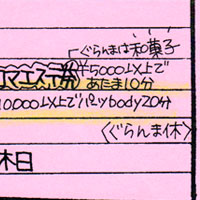 ぐらんまは和菓子
コマエステ券 ¥5000以上で
あたま10分
10,000以上でパックbody20分
〈ぐらんま休〉
休日